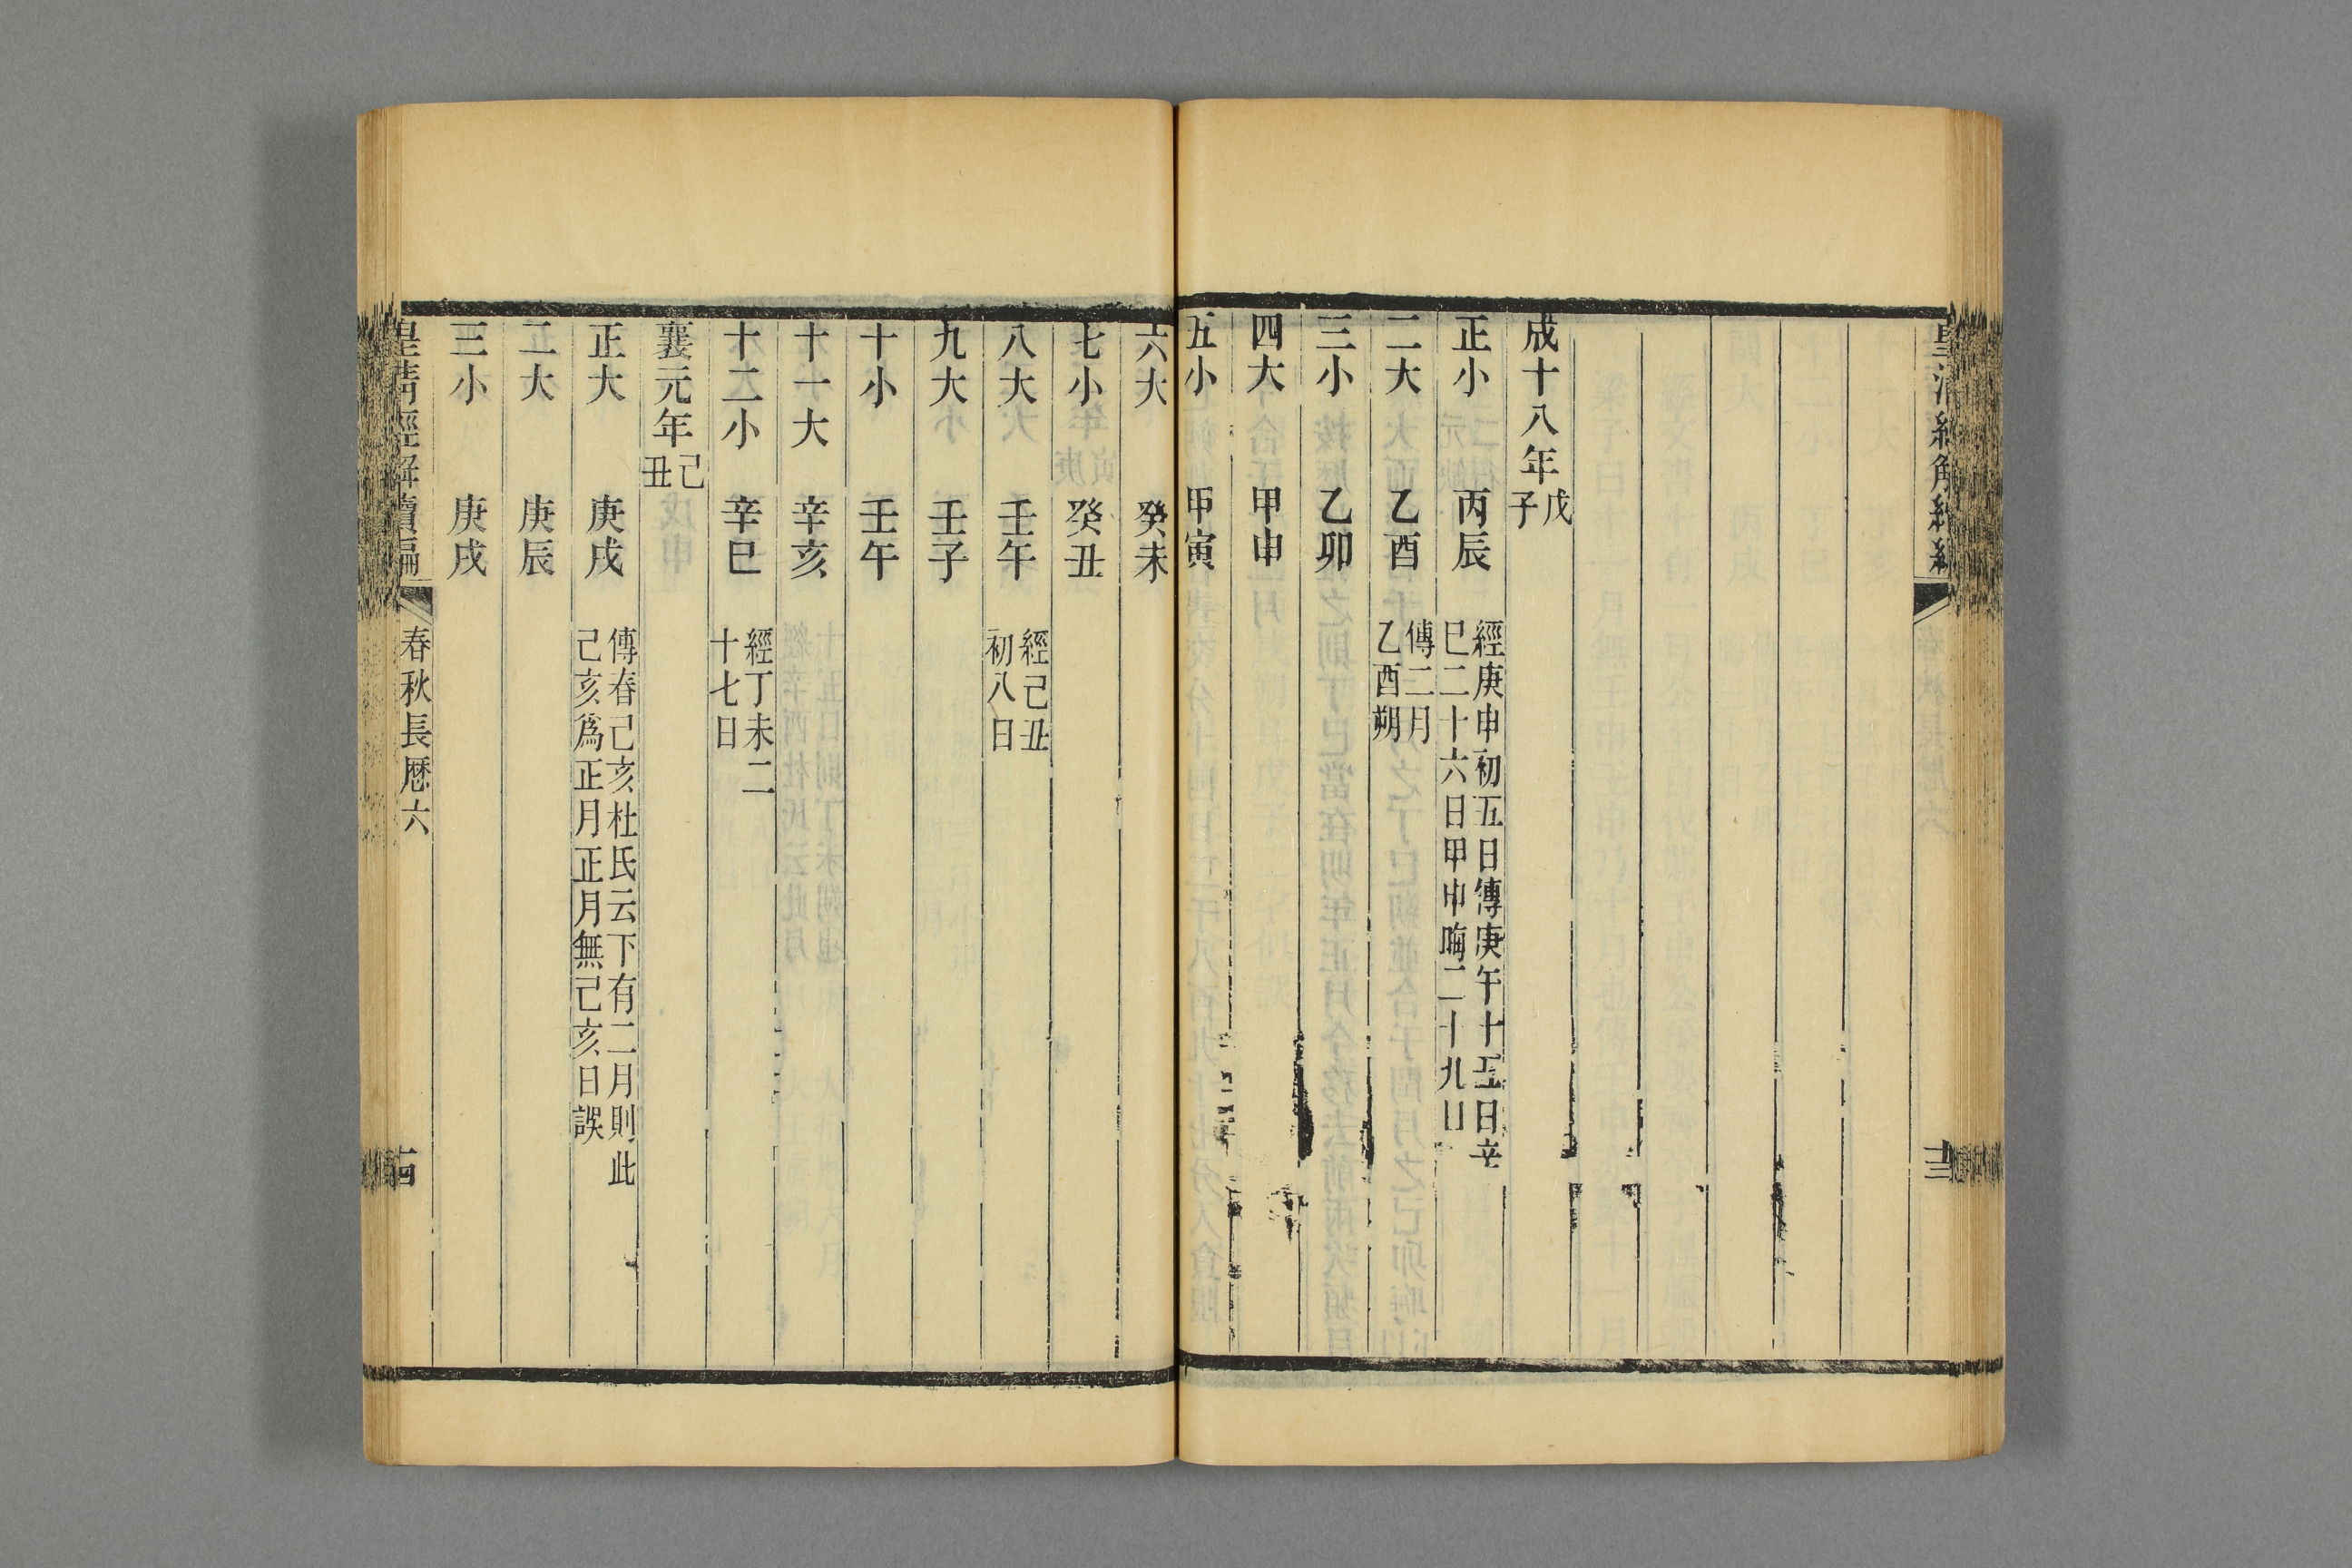 成十八年戊子
正小 丙辰 經庚申初五日傳庚午十五日辛
巳二十六日甲申晦二十九日
二大 乙酉 傳二月
乙酉朔
三小 乙卯
四大 甲申
五小 甲寅
六大 癸未
七小 癸丑
八大 壬午 經己丑
初八日
九大 壬子
十小 壬午
十一大 辛亥
十二小 辛巳 經丁未二
十七日
襄元年己丑
正大 庚戌 傳春己亥杜氏云下有二月則此
己亥爲正月正月無己亥日誤
二大 庚辰
三小 庚戌
皇清經解續編 春秋長厯六 十四